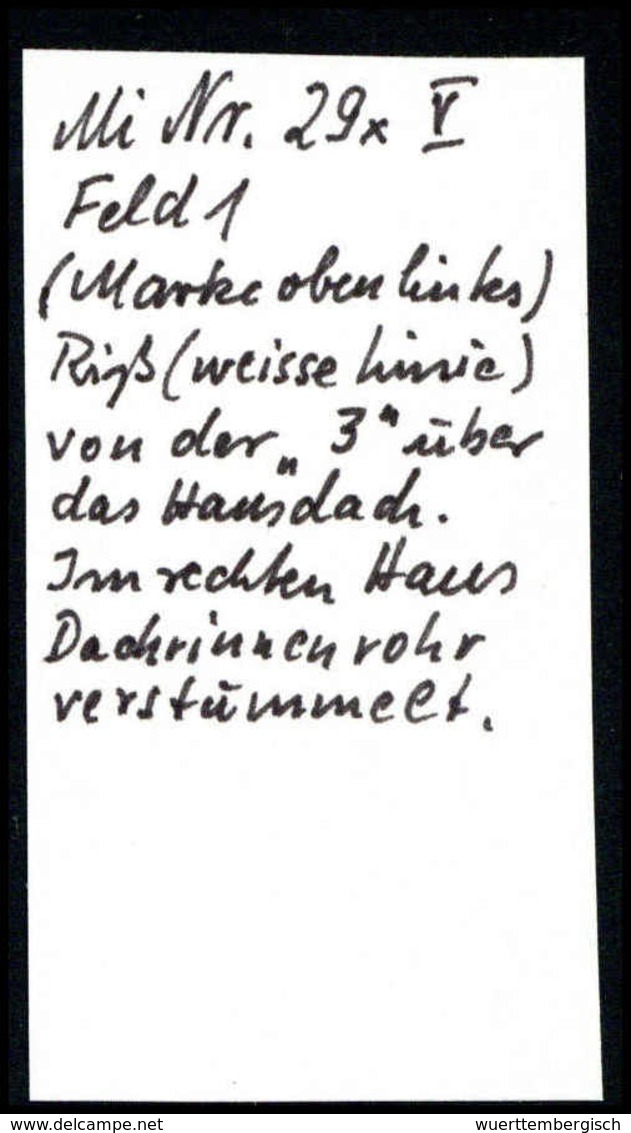 Mi Nr. 29x V
Feld 1
(Marke oben links)
Riß (weisse Linie)
von der „3“ über
das Hausdach.
Im rechten Haus
Dachrinnenrohr
verstümmelt.
www.delcampe.net wuerttembergisch